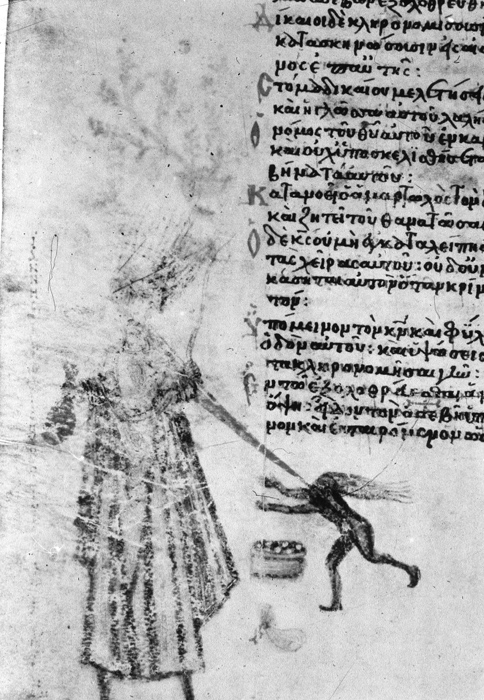 ἐξολοθρευθή
Δίκαιοι δὲ κληρονομήσουσι
κατασκηνώσουσιν εἰς αἰω
νος ἐπ' αὐτῆς:
Στόμα δικαίου μελετήσε
καὶ ἡ γλῶσσα αὐτοῦ λαλή
Ὁ νόμος τοῦ θυ αὐτοῦ ἐν καρ
καὶ οὐχ ὑποσκελισθήσετα
βήματα αὐτοῦ:
Κατανοεῖ ὁ ἁμαρτωλὸς τὸν δ
καὶ ζητεῖ τοῦ θανατῶσαι
Ὁ δὲ κς οὐ μὴ ἐγκαταλείπη
τὰς χεῖρας αὐτοῦ: οὐδ οὐ μ
κάσηται αὐτὸν ὅταν κρίν
Ὑπόμεινον τὸν κν καὶ φύλ
ὁδὸν αὐτοῦ: καὶ ὑψώσει σε
τακληρονομῆσαι γῆν:
Ἐν τῶ ἐξολοθρεύεσθαι ἁμ
ὄψη: Εἶδον τὸν ἀσεβῆ ὑπ
μενον καὶ ἐπαιρόμενον